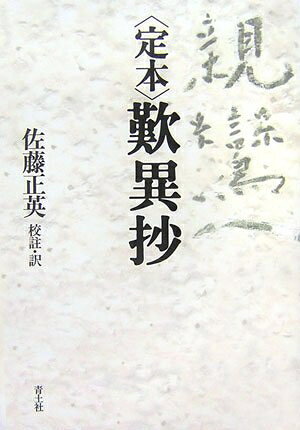 親鸞
〈定本〉歎異抄
佐藤正英 校註・訳
青土社